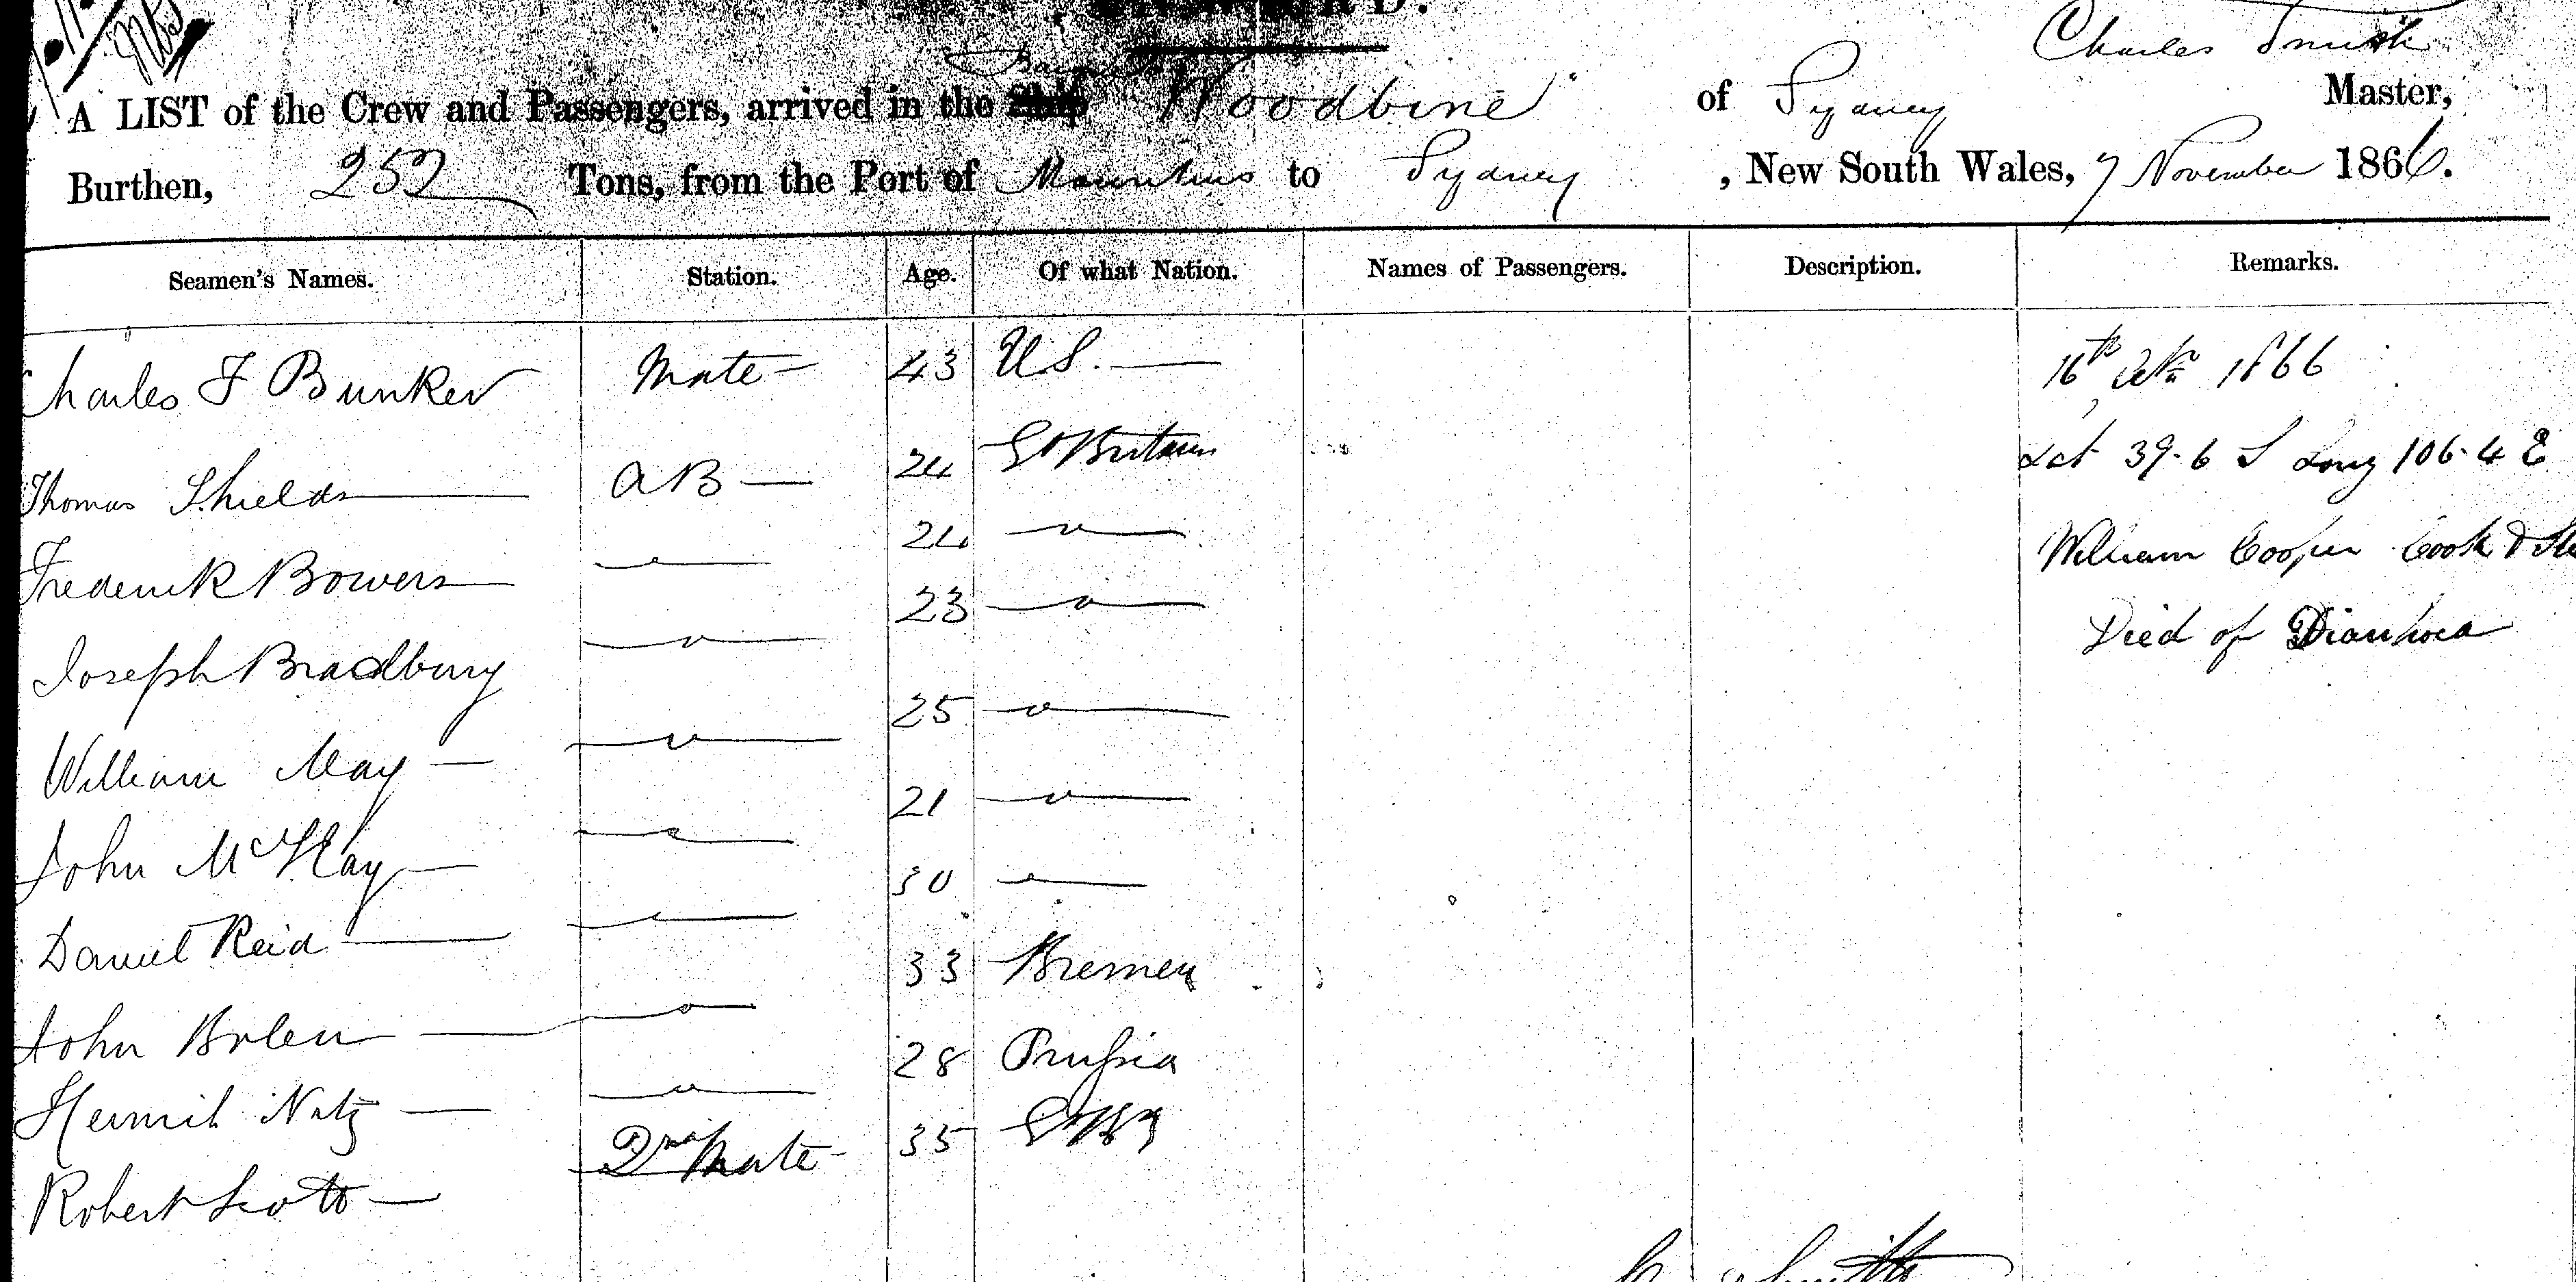 Charles Smith
A LIST of the Crew and Passengers, arrived in the Ship Woodbine of Sydney Master,
Burthen, 252 Tons, from the Port of Mauritius to Sydney, New South Wales, 7 November 1866.
Seamen's Names. Station. Age. Of what Nation. Names of Passengers. Description. Remarks.
Charles F Bunker Mate 43 U S. 16th 1866
Thomas Shields A B 24 Gt Britain Lat 39.6 S Long 106.4 E
Frederick Bowers 24 William Cooper Cook & Ste
Joseph Bradbury 23 Died of Diarrhoea
William May 25
John McKay 21
Daniel Reid 30
John Bolen 33 Bremen
Natz 28 Prussia
Robert Scott 2nd Mate 35
C Smith